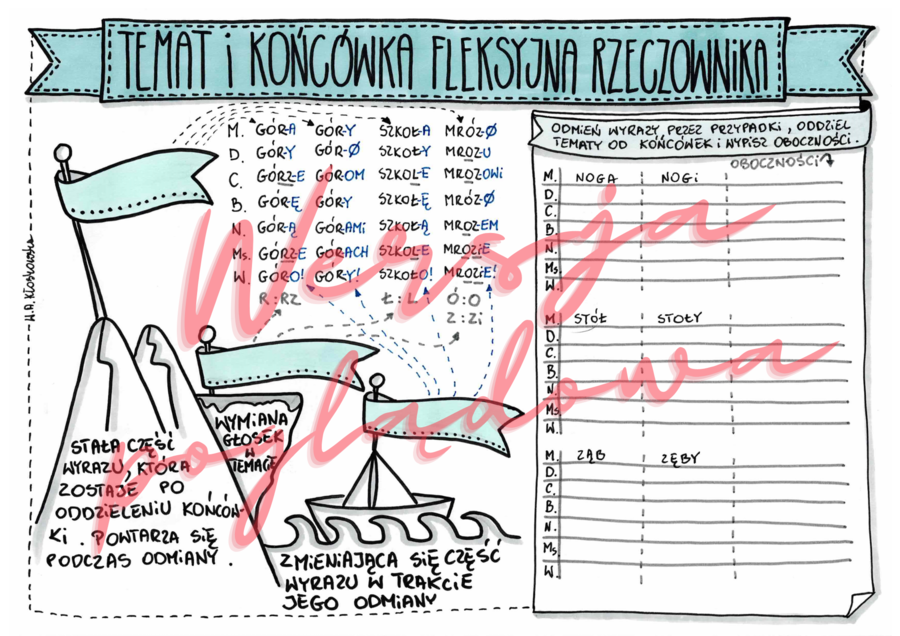 TEMAT i KOŃCÓWKA FLEKSYJNA RZECZOWNIKA
M. GÓR-A GÓR-Y SZKOŁ-A MRÓZ-Ø
D. GÓR-Y GÓR-Ø SZKOŁ-Y MROZ-U
C. GÓRZ-E GÓR-OM SZKOL-E MROZ-OWI
B. GÓR-Ę GÓR-Y SZKOŁ-Ę MRÓZ-Ø
N. GÓR-Ą GÓR-AMI SZKOŁ-Ą MROZ-EM
Ms. GÓRZ-E GÓR-ACH SZKOL-E MROZI-E
W. GÓR-O! GÓR-Y! SZKOŁ-O! MROZI-E!
R:RZ Ł:L Ó:O
Z:ZI
Wersja
poglądowa
STAŁA CZĘŚĆ
WYRAZU, KTÓRA
ZOSTAJE PO
ODDZIELENIU KOŃCÓW-
KI. POWTARZA SIĘ
PODCZAS ODMIANY.
WYMIANA
GŁOSEK
W
TEMACIE
ZMIENIAJĄCA SIĘ CZĘŚĆ
WYRAZU W TRAKCIE
JEGO ODMIANY
H.A.Kłoskowska
ODMIEŃ WYRAZY PRZEZ PRZYPADKI, ODDZIEL
TEMATY OD KOŃCÓWEK I WYPISZ OBOCZNOŚCI.
OBOCZNOŚCI
M. NOGA NOGI
D.
C.
B.
N.
Ms.
W.
M. STÓŁ STOŁY
D.
C.
B.
N.
Ms.
W.
M. ZĄB ZĘBY
D.
C.
B.
N.
Ms.
W.